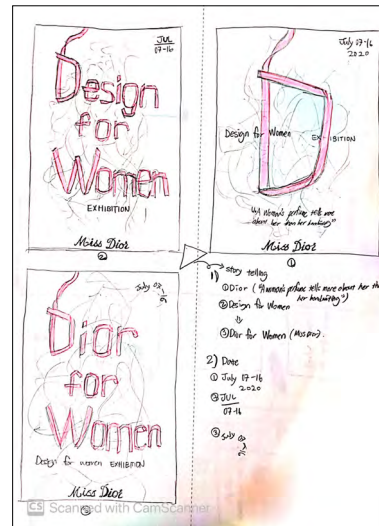 JUL
07-16
Design
for
Women
EXHIBITION
Miss Dior
②
July 07-16
2020
Design for Women EXHIBITION
"A Woman's perfume tells more
about her than her handwriting"
Miss Dior
①
Dior
for
Women
Design for women EXHIBITION
Miss Dior
1) Story telling
① Dior ("A Woman's perfume tells more about her than
her handwriting")
② Design for Women
⇓
③ Dior for Women (Miss Dior).
2) Date
① July 07-16
2020
② JUL
07-16
③ July
CS Scanned with CamScanner